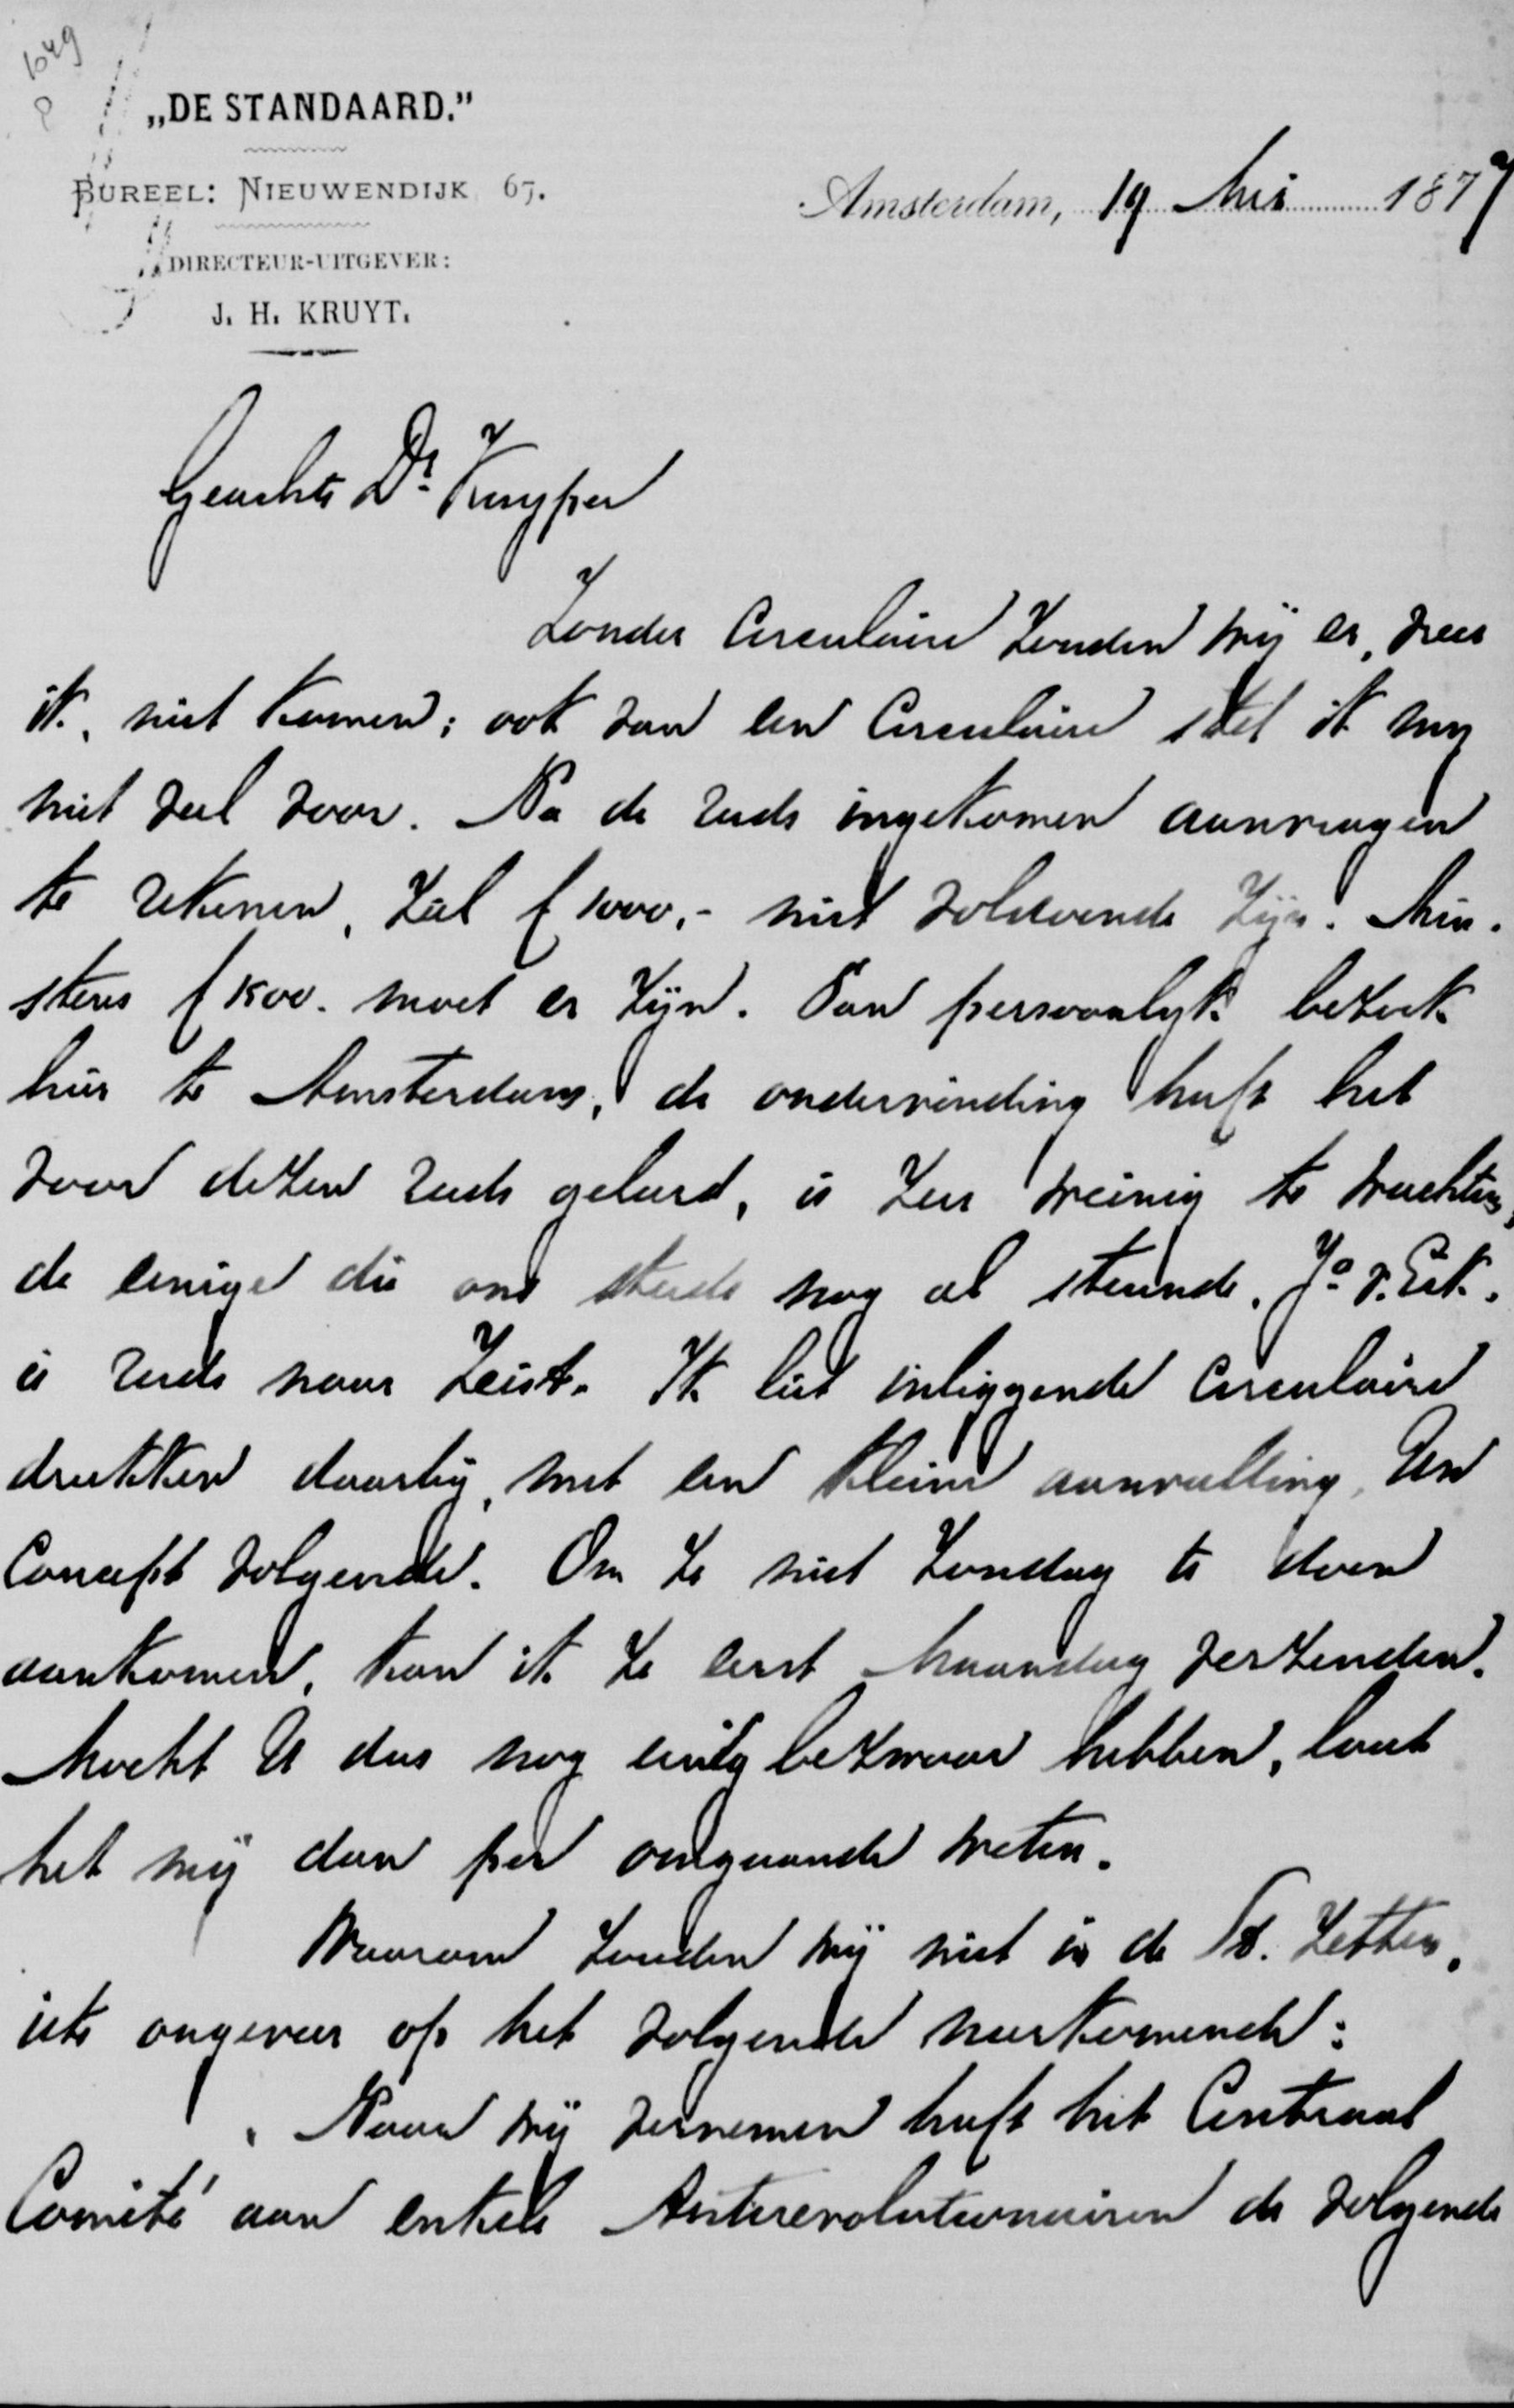 1049
„DE STANDAARD.”
BUREEL: NIEUWENDIJK 67.
DIRECTEUR-UITGEVER:
J. H. KRUYT.
Amsterdam, 19 Mei 1877
Geachte Dr. Kuyper
Zonder Circulaire zouden wij er, vrees
ik, niet komen; ook van een Circulaire stel ik mij
niet veel voor. Na de reeds ingekomen aanvragen
te rekenen, zal f 1000,- niet voldoende zijn. Min-
stens f 1500.- moet er zijn. Van persoonlijk bezoek
hier te Amsterdam, de ondervinding heeft het
voor dezen reeds geleerd, is zeer weinig te wachten,
de eenige die ons steeds nog al steunde, Jo. v. Eik.
is reeds naar Zeist. Ik liet inliggende Circulaire
drukken daarbij, met een kleine aanvulling, Uw
Concept volgende. Om ze niet Zondag te doen
aankomen, kan ik ze eerst Maandag verzenden.
Mocht U dus nog eenig bezwaar hebben, laat
het mij dan per omgaande weten.
Waarom zouden wij niet in de St. zetten,
iets ongeveer op het volgende neerkomende:
Naar wij vernemen heeft het Centraal
Comité aan enkele Antirevolutionairen de volgende